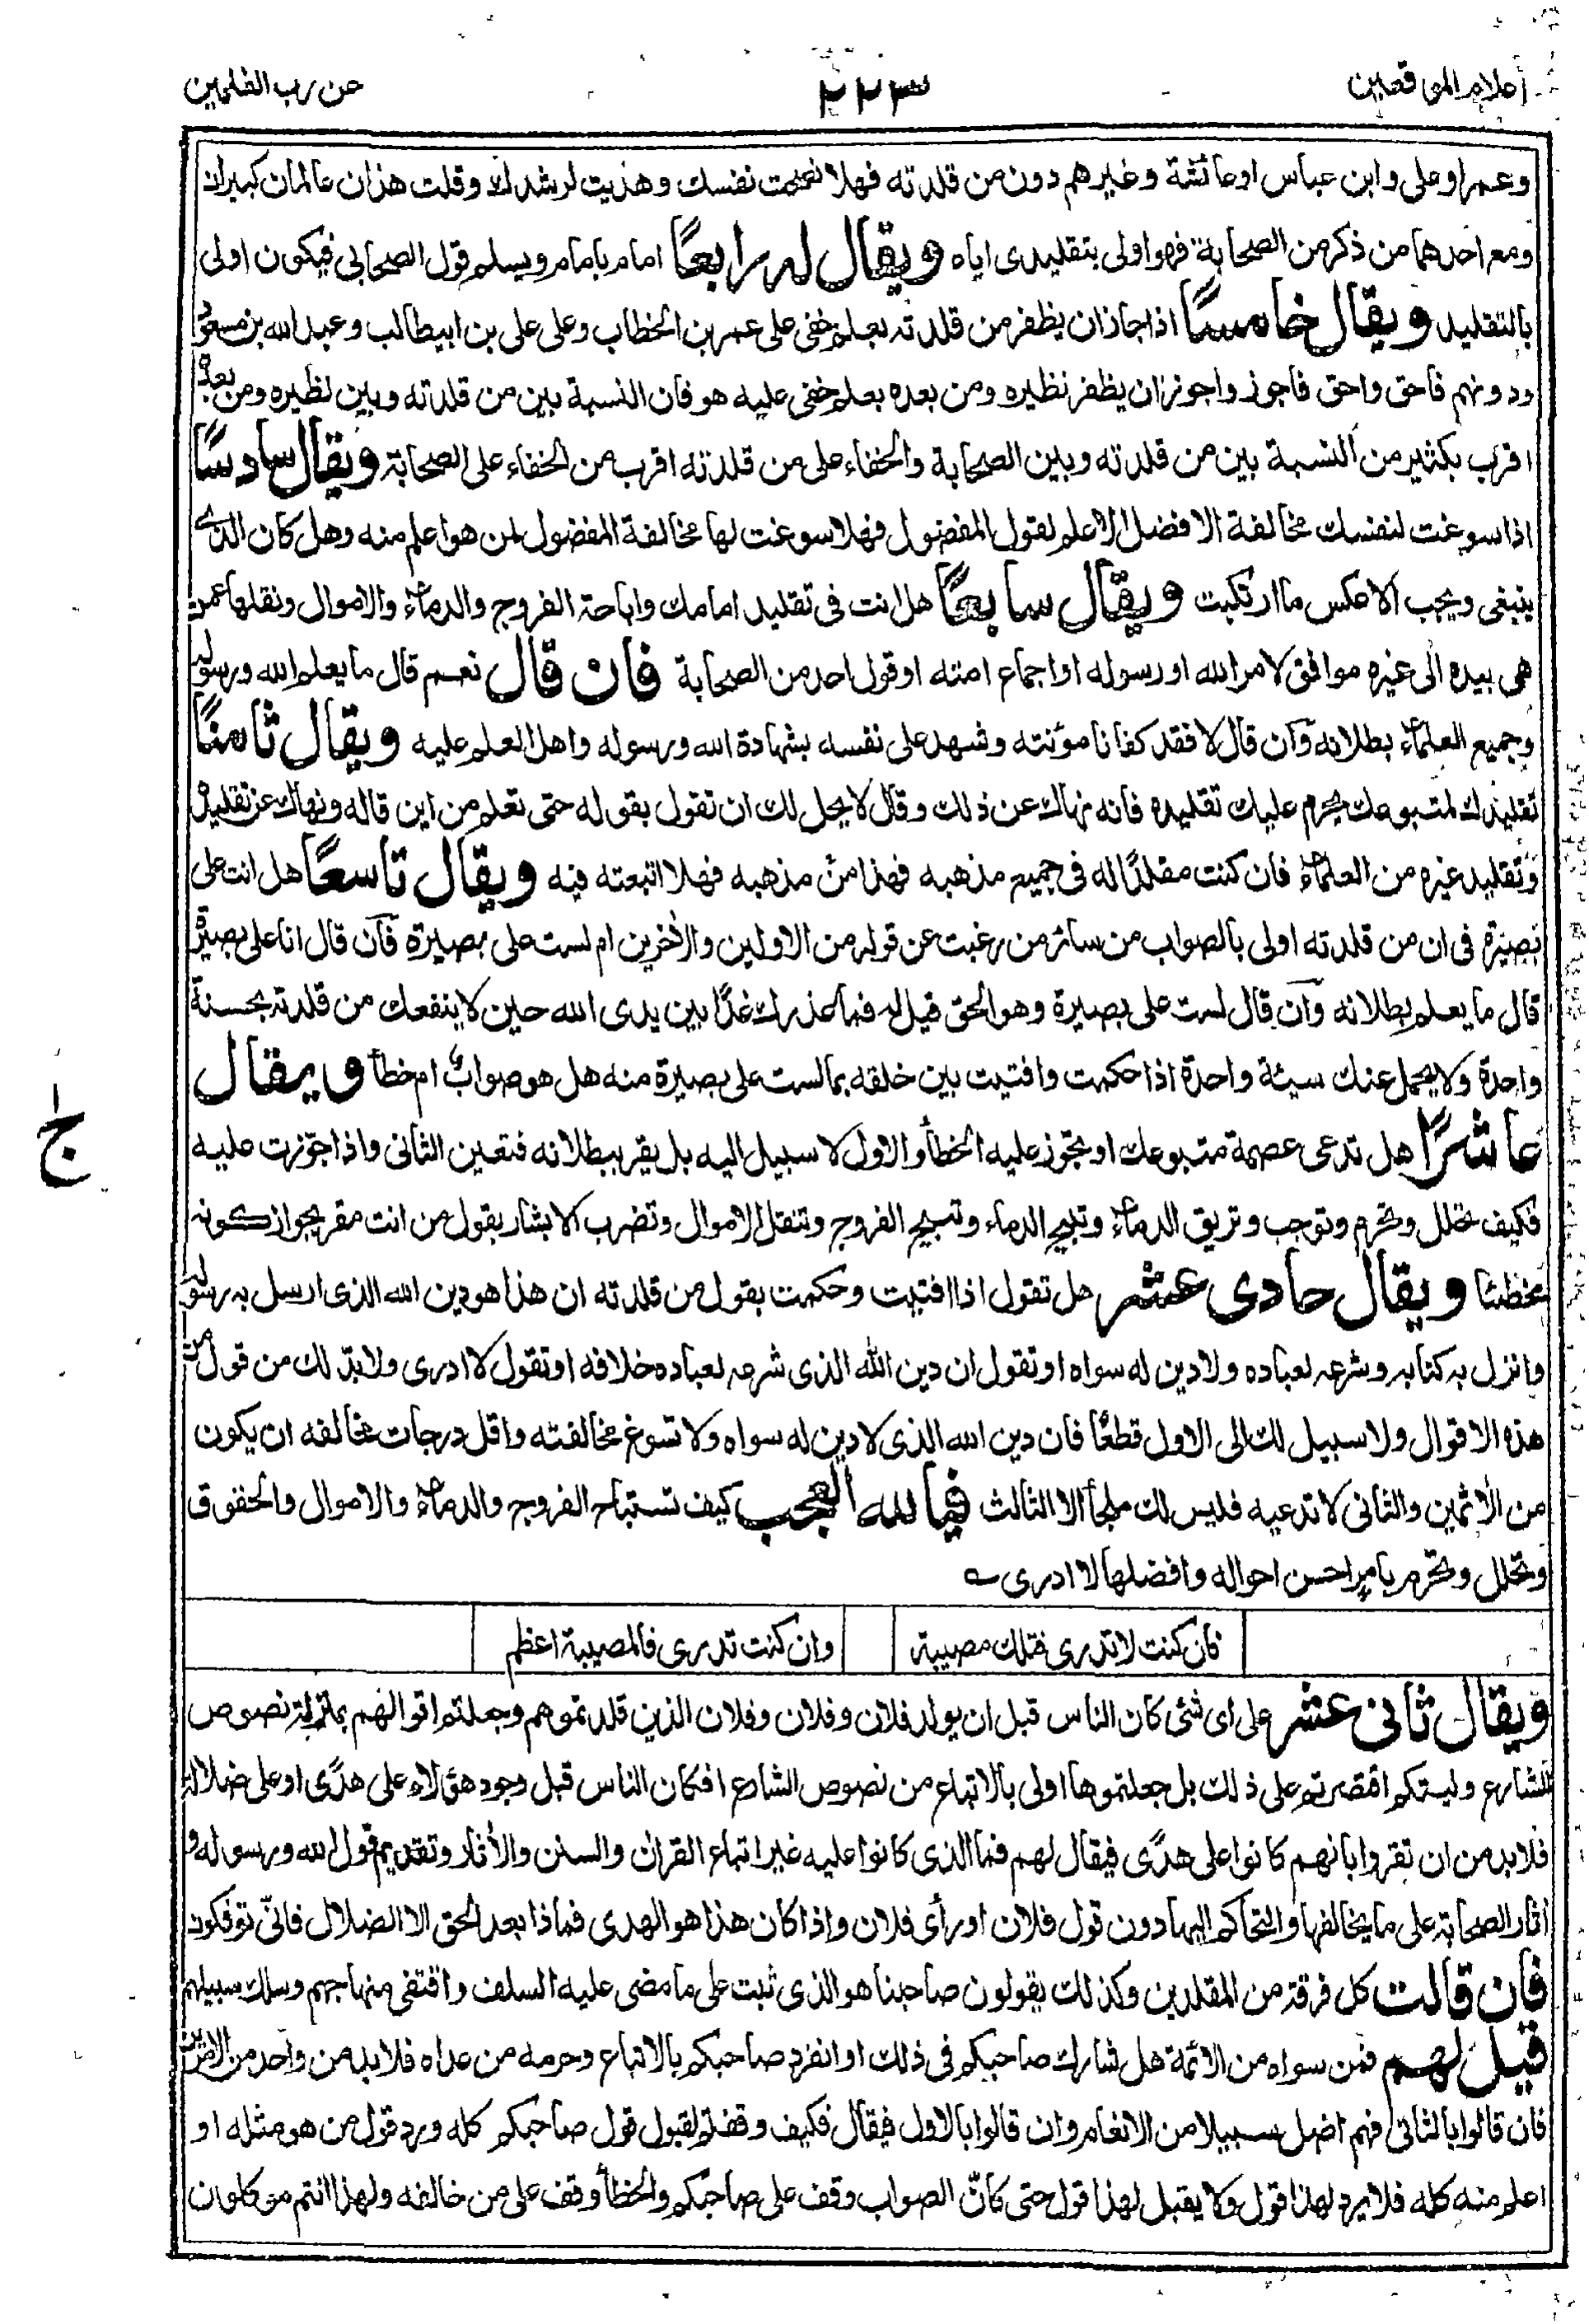 اعلام الموقعين
٢٢٣
عن رب العلمين
وعمر او على وابن عباس او عائشة وغيرهم دون من قلدته فهلا نصحت نفسك وهديت لرشدك وقلت هذان عالمان كبيران
ومع احدهما من ذكر من الصحابة فهو اولى بتقليدى اياه ويقال له رابعًا امام بامام ويسلم قول الصحابى فيكون اولى
بالتقليد ويقال خامسًا اذا جاز ان يظفر من قلدته بعلم خفى على عمر بن الخطاب وعلى على بن ابيطالب وعبد الله بن مسعود
ودونهم فاحق واحق فاجوز واجوز ان يظفر نظيره ومن بعده بعلم خفى عليه هو فان النسبة بين من قلدته وبين نظيره ومن بعده
اقرب بكثير من النسبة بين من قلدته وبين الصحابة والخفاء على من قلدته اقرب من الخفاء على الصحابة ويقال سادسًا
اذا سوغت لنفسك مخالفة الافضل الاعلم لقول المفضول فهلا سوغت لها مخالفة المفضول لمن هو اعلم منه وهل كان الذى
ينبغى ويجب الا عكس ما ارتكبت ويقال سابعًا هل انت فى تقليد امامك واباحة الفروج والدماء والاموال ونقلها عمن
هى بيده الى غيره موافق لامر الله او رسوله او اجماع امته او قول احد من الصحابة فان قال نعم قال ما يعلم الله ورسوله
وجميع العلماء بطلانه وان قال لا فقد كفانا مؤنته وشهد على نفسه بشهادة الله ورسوله واهل العلم عليه ويقال ثامنًا
تقليدك لمتبوعك يحرم عليك تقليده فانه نهاك عن ذلك وقال لا يحل لك ان تقول بقوله حتى تعلم من اين قاله ونهاك عن تقليده
وتقليد غيره من العلماء فان كنت مقلدًا له فى جميع مذهبه فهذا من مذهبه فهلا اتبعته فيه ويقال تاسعًا هل انت على
بصيرة فى ان من قلدته اولى بالصواب من سائر من رغبت عن قوله من الاولين والاٰخرين ام لست على بصيرة فان قال انا على بصيرة
قال ما يعلم بطلانه وان قال لست على بصيرة وهو الحق قيل له فما عذرك غدًا بين يدى الله حين لا ينفعك من قلدته بحسنة
واحدة ولا يحمل عنك سيئة واحدة اذا حكمت وافتيت بين خلقه بما لست على بصيرة منه هل هو صواب ام خطأ ويقال
عاشرًا هل تدعى عصمة متبوعك او تجوز عليه الخطأ والاول لا سبيل اليه بل يقر ببطلانه فتعين الثانى واذا جوّزت عليه
فكيف تحلل وتحرم وتوجب وتريق الدماء وتبيح الدماء وتبيح الفروج وتنقل الاموال وتضرب الابشار بقول من انت مقر بجواز كونه
مخطئا ويقال حادى عشر هل تقول اذا افتيت وحكمت بقول من قلدته ان هذا هو دين الله الذى ارسل به رسوله
وانزل به كتابه وشرعه لعباده ولا دين له سواه او تقول ان دين الله الذى شرعه لعباده خلافه او تقول لا ادرى ولا بدّ لك من قول من
هذه الاقوال ولا سبيل لك الى الاول قطعًا فان دين الله الذى لا دين له سواه ولا تسوغ مخالفته واقل درجات مخالفه ان يكون
من الاٰثمين والثانى لا تدعيه فليس لك ملجأ الا الثالث فيا لله العجب كيف تستباح الفروج والدماء والاموال والحقوق
وتحلل وتحرم بامر احسن احواله وافضلها لا ادرى
فان كنت لا تدرى فتلك مصيبة
وان كنت تدرى فالمصيبة اعظم
ويقال ثانى عشر على اى شئ كان الناس قبل ان يولد فلان وفلان وفلان الذين قلدتموهم وجعلتم اقوالهم بمنزلة نصوص
الشارع وليتكم اقتصرتم على ذلك بل جعلتموها اولى بالاتباع من نصوص الشارع افكان الناس قبل وجود هؤلاء على هدًى او على ضلالة
فلا بد من ان تقروا بانهم كانوا على هدًى فيقال لهم فما الذى كانوا عليه غير اتباع القراٰن والسنن والاٰثار وتقديم قول الله ورسوله و
اٰثار الصحابة على ما يخالفها والتحاكم اليها دون قول فلان او رأى فلان واذا كان هذا هو الهدى فماذا بعد الحق الا الضلال فانّى توفكون
فان قالت كل فرقة من المقلدين وكذلك يقولون صاحبنا هو الذى ثبت على ما مضى عليه السلف واقتفى منهاجهم وسلك سبيلهم
قيل لهم فمن سواه من الائمة هل شارك صاحبكم فى ذلك او انفرد صاحبكم بالاتباع وحرمه من عداه فلا بد من واحد من الامرين
فان قالوا بالثانى فهم اضل سبيلا من الانعام وان قالوا بالاول فيقال فكيف وقفتم لقبول قول صاحبكم كله ورد قول من هو مثله او
اعلم منه كله فلا يرد لهذا قول ولا يقبل لهذا قول حتى كانّ الصواب وقف على صاحبكم والخطأ وقف على من خالفه ولهذا انتم موكلون
ج ١